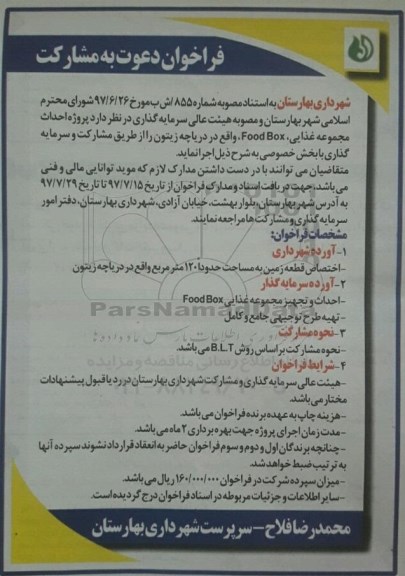 فراخوان دعوت به مشارکت
شهرداری بهارستان به استناد مصوبه شماره ۸۵۵/ش ب مورخ ۹۷/۶/۲۶ شورای محترم
اسلامی شهر بهارستان و مصوبه هیئت عالی سرمایه گذاری در نظر دارد پروژه احداث
مجموعه غذایی، Food Box، واقع در دریاچه زیتون را از طریق مشارکت و سرمایه
گذاری با بخش خصوصی به شرح ذیل اجرا نماید.
متقاضیان می توانند با در دست داشتن مدارک لازم که موید توانایی مالی و فنی
می باشد، جهت دریافت اسناد و مدارک فراخوان از تاریخ ۹۷/۷/۱۵ تا تاریخ ۹۷/۷/۲۹
به آدرس شهر بهارستان، بلوار بهشت، خیابان آزادی، شهرداری بهارستان، دفتر امور
سرمایه گذاری و مشارکت ها مراجعه نمایند.
مشخصات فراخوان:
۱-آورده شهرداری
-اختصاص قطعه زمین به مساحت حدودا ۱۲۰ متر مربع واقع در دریاچه زیتون
۲-آورده سرمایه گذار
-احداث و تجهیز مجموعه غذایی Food Box
-تهیه طرح توجیهی جامع و کامل
۳-نحوه مشارکت
-نحوه مشارکت بر اساس روش B.L.T می باشد.
۴-شرایط فراخوان
-هیئت عالی سرمایه گذاری و مشارکت شهرداری بهارستان در رد یا قبول پیشنهادات
مختار می باشد.
-هزینه چاپ به عهده برنده فراخوان می باشد.
-مدت زمان اجرای پروژه جهت بهره برداری ۲ ماه می باشد.
-چنانچه برندگان اول و دوم و سوم فراخوان حاضر به انعقاد قرارداد نشوند سپرده آنها
به ترتیب ضبط خواهد شد.
-میزان سپرده شرکت در فراخوان ۱۶۰/۰۰۰/۰۰۰ ریال می باشد.
-سایر اطلاعات و جزئیات مربوطه در اسناد فراخوان درج گردیده است.
محمدرضا فلاح-سرپرست شهرداری بهارستان